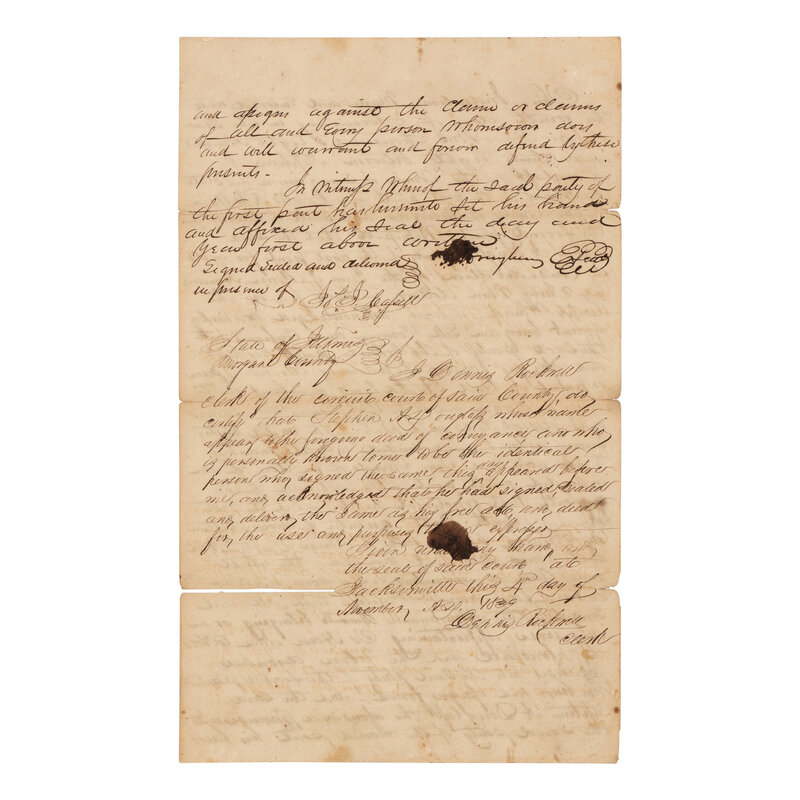 and assigns against the claim or claims
of all and Every person Whomsoever does
and will warrant and forever defend by these
presents.
In Witness Whereof the said party of
the first part has hereunto Set his hand
and affixed his Seal the day and
Year first above written
Signed Sealed and delivered
in presence of
Cassell
State of Illinois
Morgan County
I Dennis Rockwell
clerk of the circuit court of said County, do
certify that Stephen A Douglass whose name
appears to the foregoing deed of conveyance and who
is personally known to me to be the identical
person who signed the same, this day appeared before
me, and acknowledged that he had signed, sealed
and deliver, the same as his free act, and deed
for, the uses and purposes express
Given under my hand, and
the seal of said court, at
Jacksonville this 4 day of
November, A.D.
Dennis Rockwell
Clerk